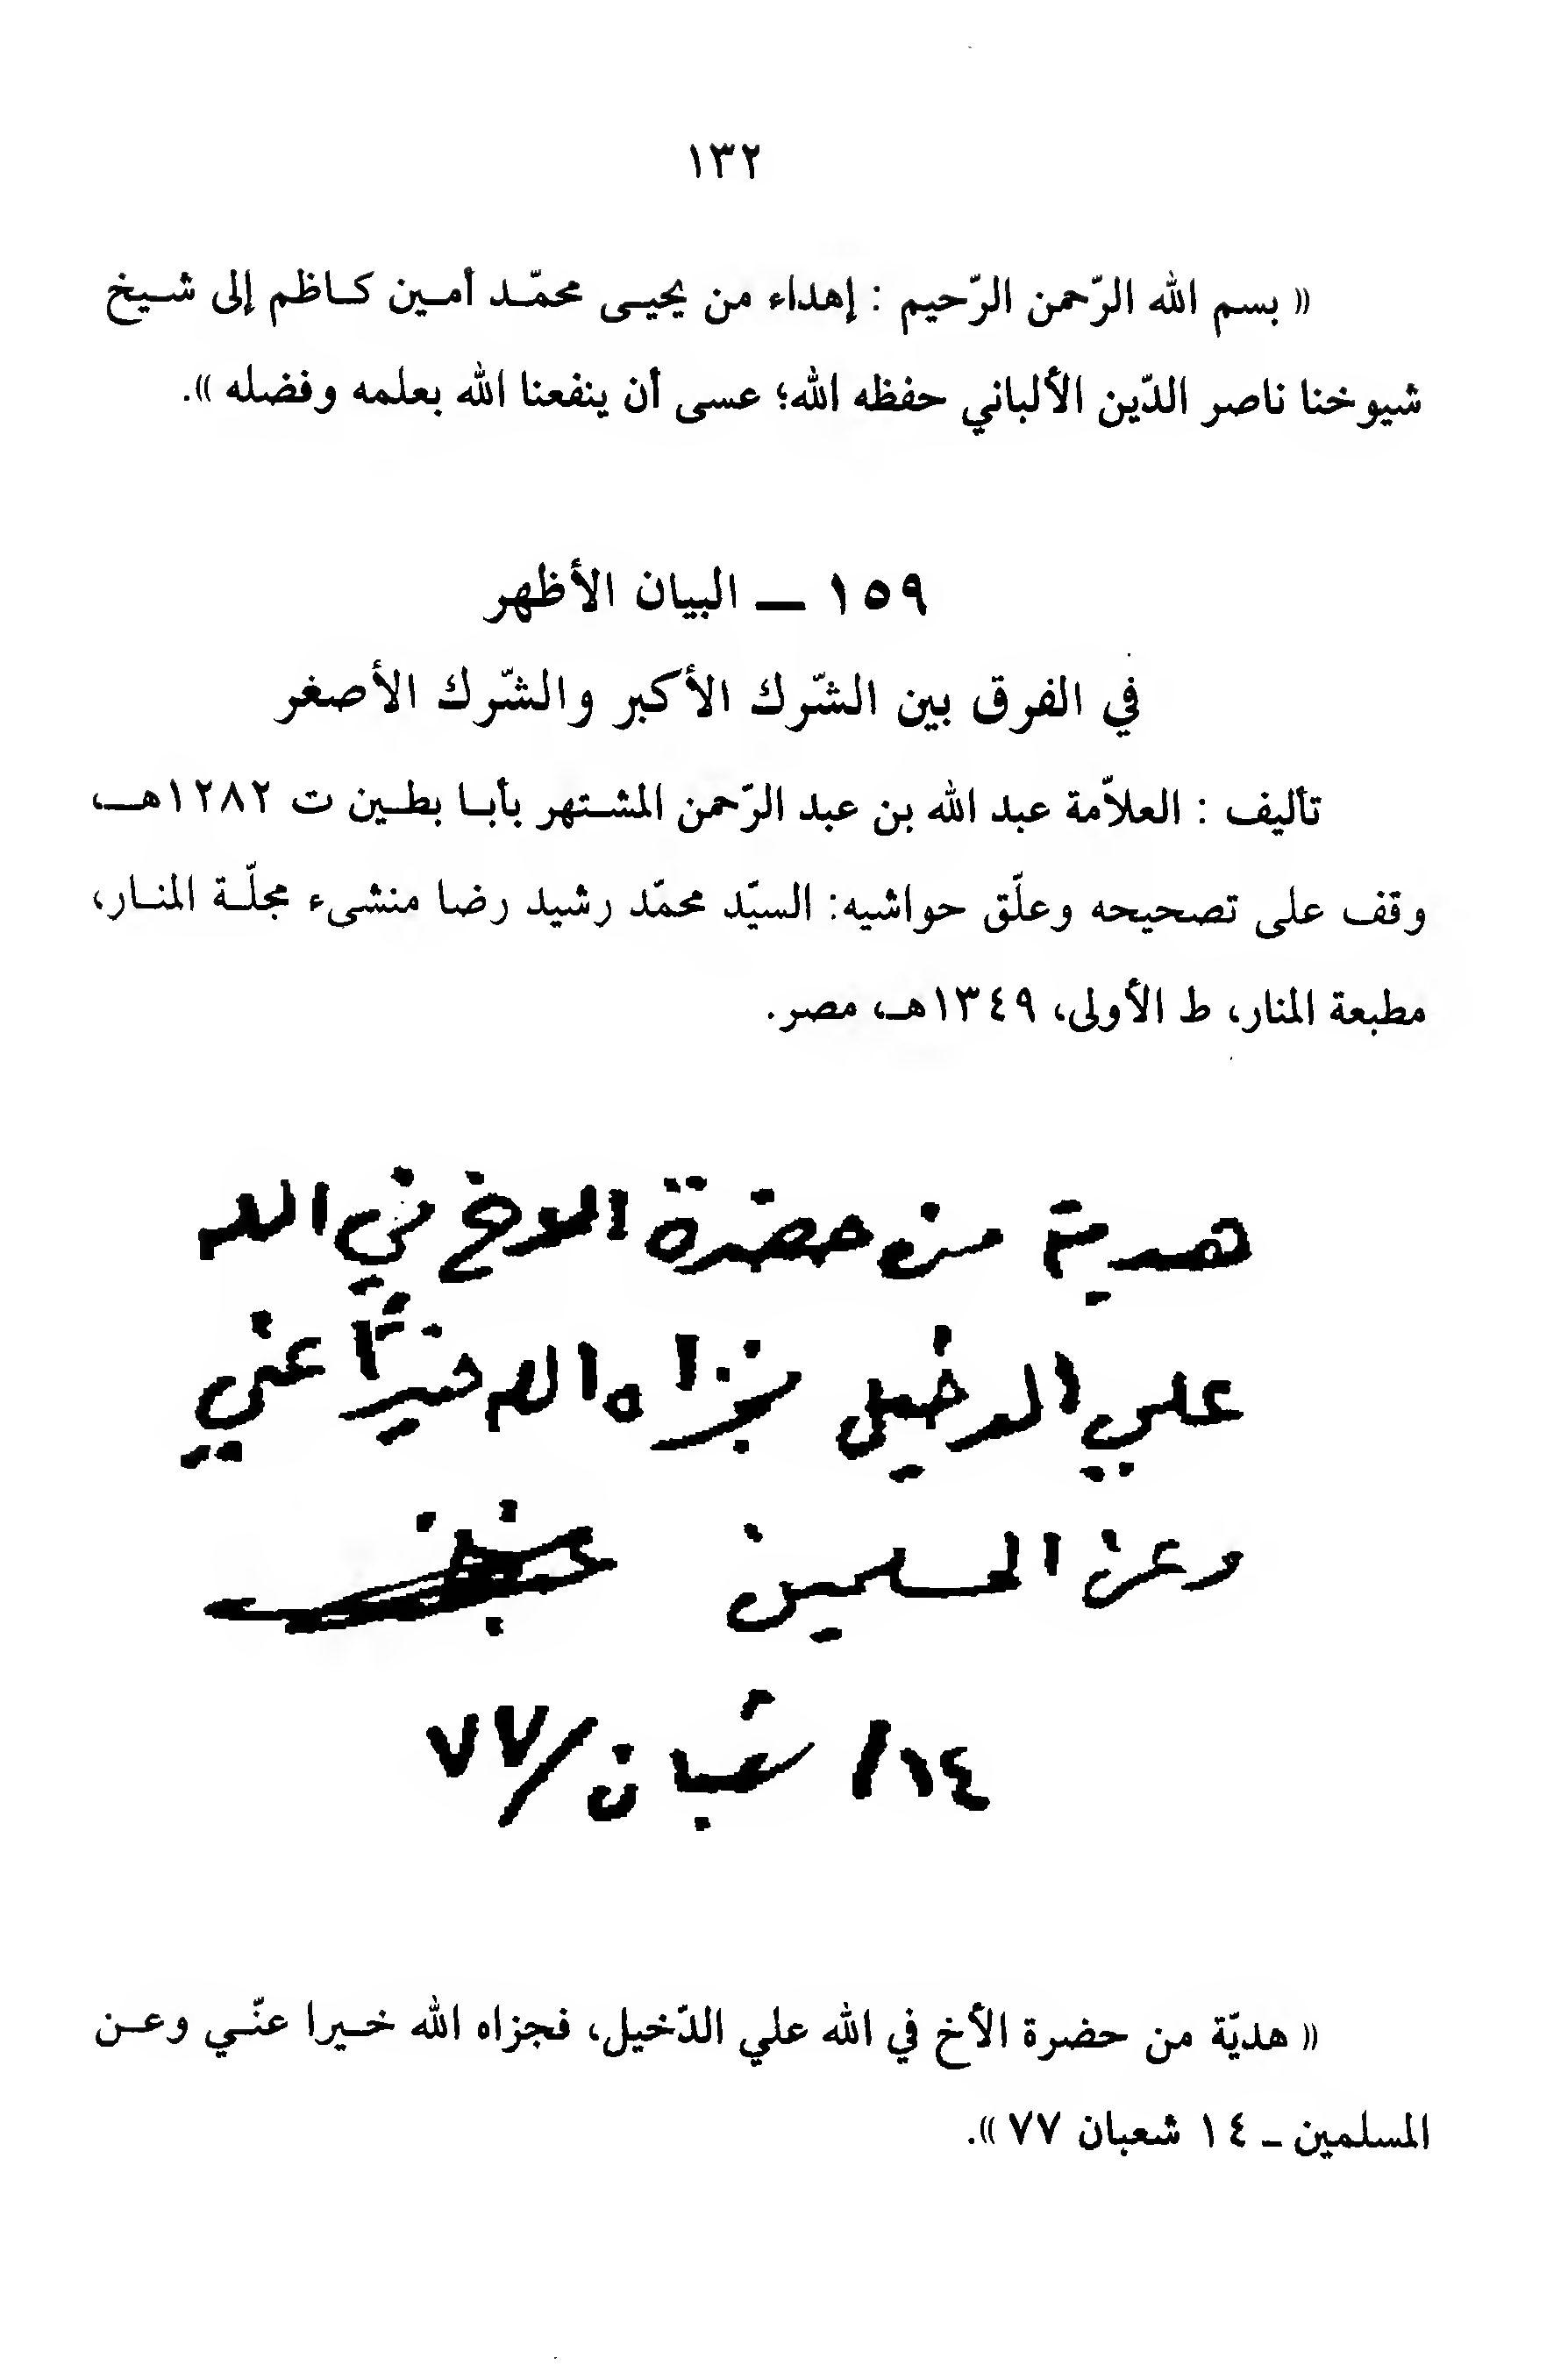 ١٣٢
« بسم الله الرّحمن الرّحيم : إهداء من يحيى محمّد أمين كاظم إلى شيخ
شيوخنا ناصر الدّين الألباني حفظه الله؛ عسى أن ينفعنا الله بعلمه وفضله ».
١٥٩ — البيان الأظهر
في الفرق بين الشّرك الأكبر والشّرك الأصغر
تأليف : العلاّمة عبد الله بن عبد الرّحمن المشتهر بأبا بطين ت ١٢٨٢هـ،
وقف على تصحيحه وعلّق حواشيه: السيّد محمّد رشيد رضا منشىء مجلّة المنار،
مطبعة المنار، ط الأولى، ١٣٤٩هـ، مصر.
هدية من حضرة الاخ في الله
علي الدخيل فجزاه الله خيرًا عني
وعن المسلمين
١٤/ شعبان/٧٧
« هديّة من حضرة الأخ في الله علي الدّخيل، فجزاه الله خيرا عنّي وعن
المسلمين ـ ١٤ شعبان ٧٧ ».